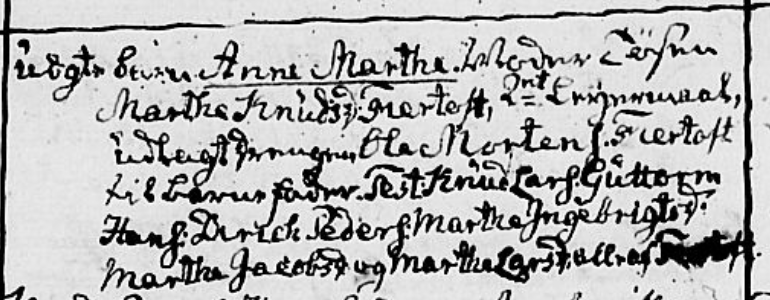 üegte barn Anne Marthe. Moder Tøsen
Marthe Knüdsd. Fiertoft, 2det Leyermaal,
üdlagt drengen Ole Mortens. Fiertoft
til barnefader. Test. Knüd Lars. Güttorm
Hans. Dirich Peders. Martha Ingebrigtsd.
Martha Jacobsd. og Martha Larsd. alle af